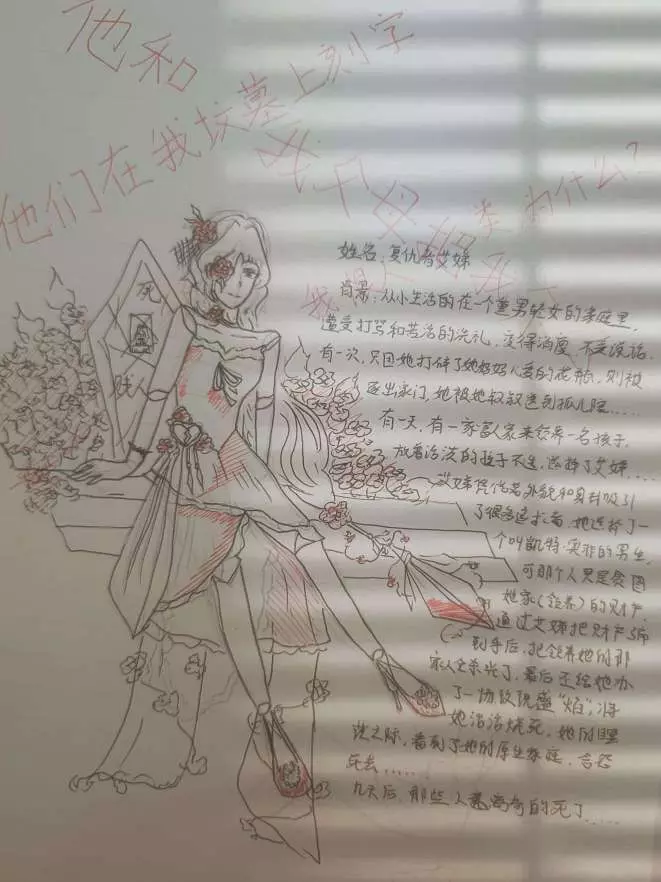 他和
他们在我坟墓上刻字
为什么?
死
贱人
姓名:复仇者艾娣
背景:从小生活的在一个重男轻女的家庭里,
遭受打骂和苦活的洗礼,变得消瘦,不爱说话.
有一次,只因她打碎了她妈妈心爱的花瓶,则被
逐出家门,她被她叔叔送到孤儿院......
有一天,有一家富人家来领养一名孩子,
放着活泼的孩子不选,选择了艾娣....
艾娣凭借着外貌和身材吸引
了很多追求者,她选择了一
个叫凯特·奥非的男生.
可那个人只是贪图
她家(领养)的财产.
通过艾娣把财产
到手后,把领养她的那
家人全杀光了,最后还给她办
了一场欧洲盛"焰",将
她活活烧死,她的
之际,看到了她的原生家庭,含恨
死去......
几天后,那些人离奇的死了.....